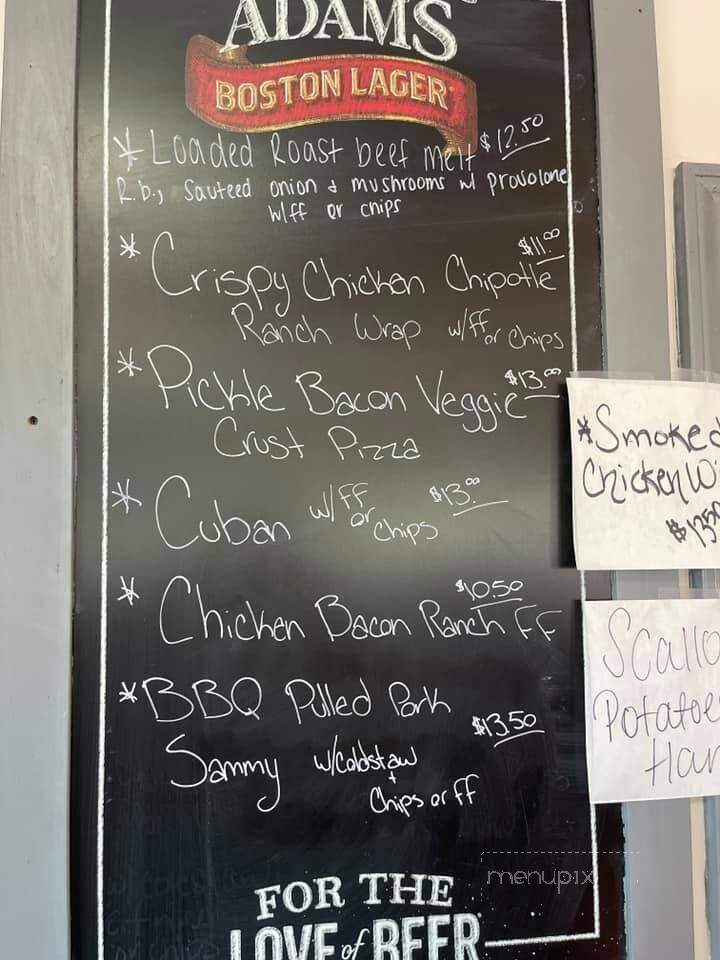 ADAMS
BOSTON LAGER
* Loaded Roast beef melt $12.50
R.b., Sauteed onion & mushrooms w/ provolone
w/ff or chips
* Crispy Chicken Chipotle $11.00
Ranch Wrap w/ff or chips
* Pickle Bacon Veggie $13.00
Crust Pizza
* Cuban w/ FF or chips $13.00
* Chicken Bacon Ranch FF $10.50
* BBQ Pulled Pork
Sammy w/coldslaw $13.50
+
Chips or ff
*Smoked
Chicken Wi
$13.50
Scallo
Potatoe
Ham
menupix
FOR THE
LOVE of BEER